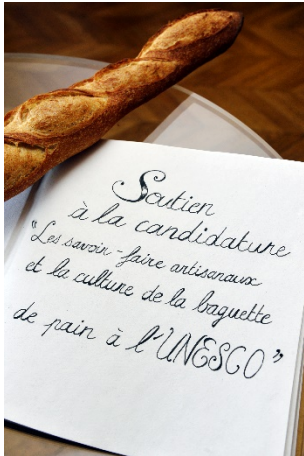 Soutien
à la candidature
"Les savoir-faire artisanaux
et la culture de la baguette
de pain à l'UNESCO"